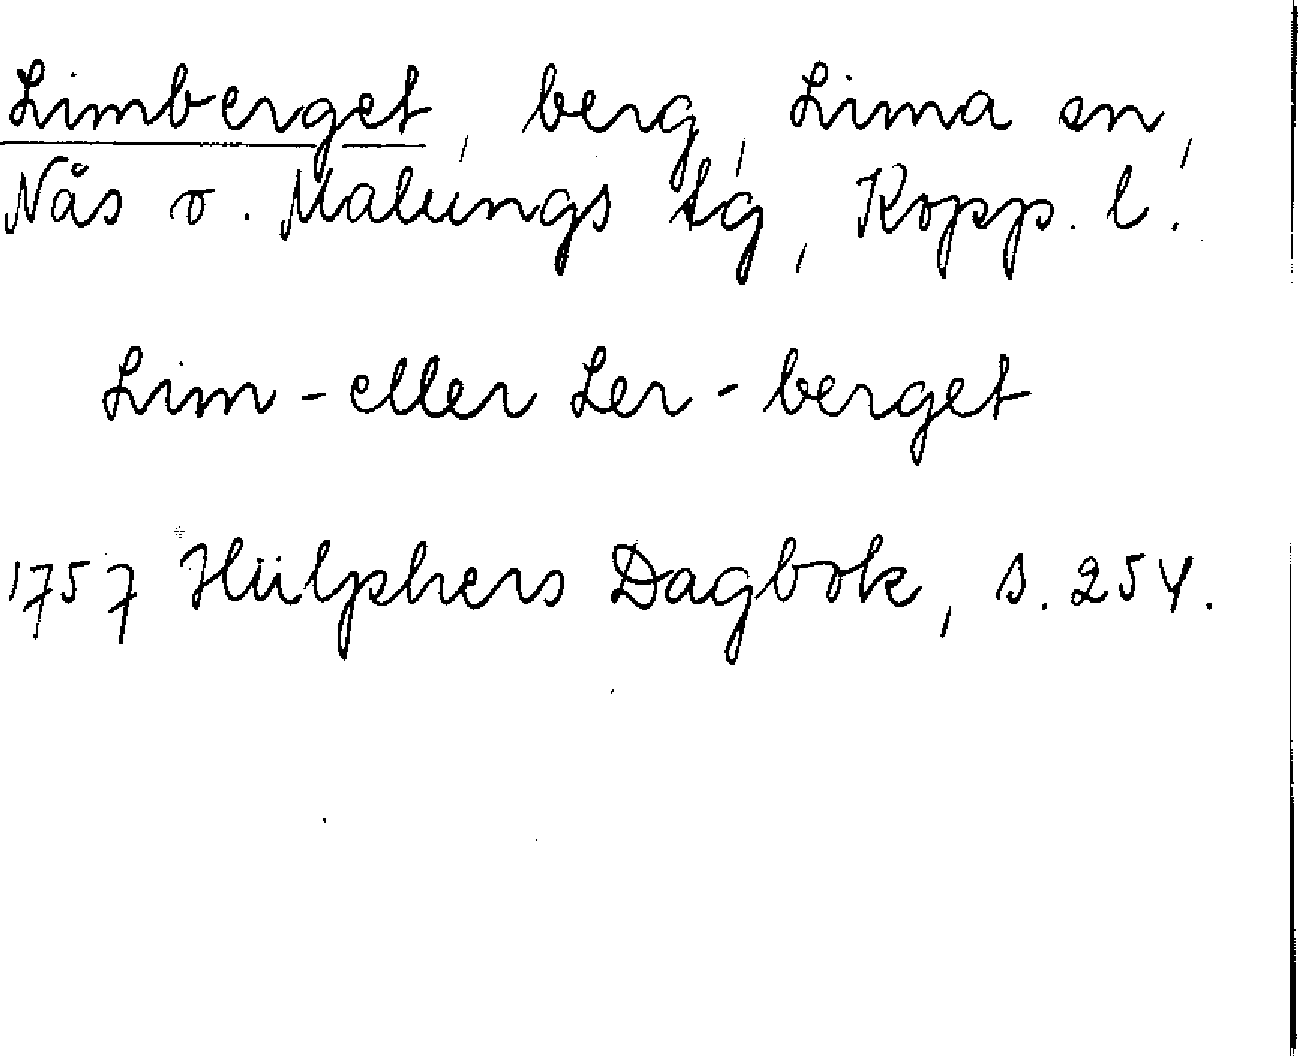 Limberget, berg, Lima sn,
Nås o. Malungs tg, Kopp. l.
Lim- eller Ler-berget
1757 Hülphers Dagbok, s. 254.